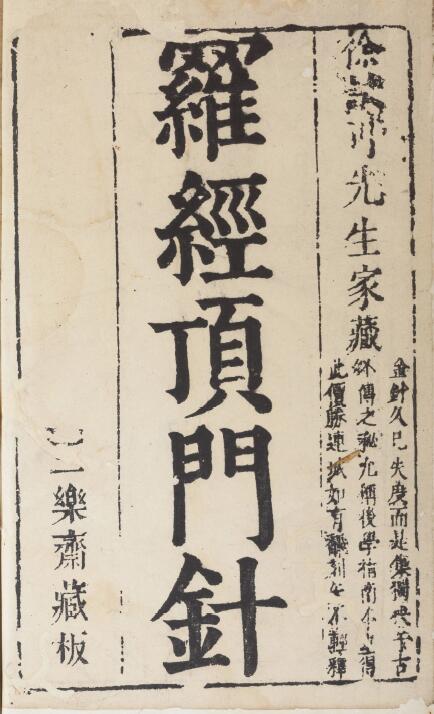 徐試可先生家藏
金針久已失度而是集獨千古
傳之秘尤稱後學指南得
此價勝連城如有翻刻不輕釋
羅經頂門針
三樂齋藏板